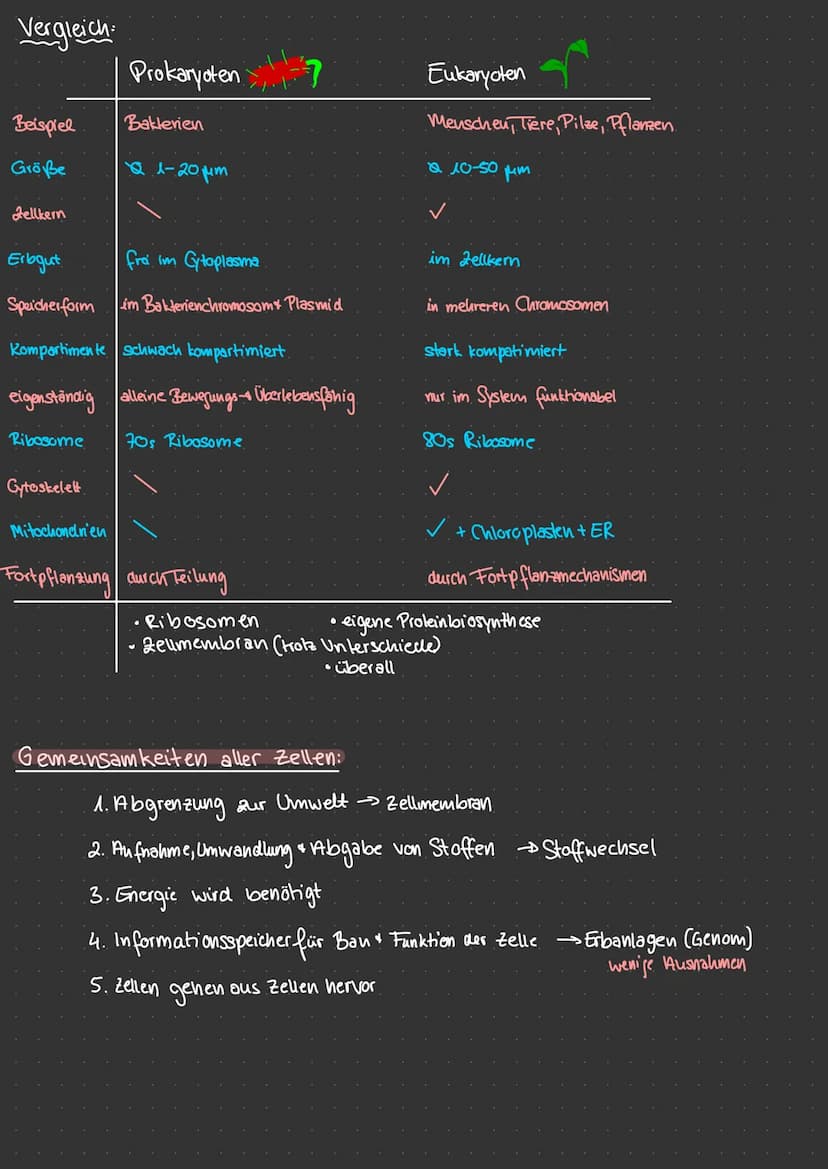 Vergleich:
Prokaryoten Eukaryoten
Beispiel Bakterien Menschen, Tiere, Pilze, Pflanzen
Größe Ø 1-20 µm Ø 10-50 µm
Zellkern \ ✓
Erbgut frei im Cytoplasma im Zellkern
Speicherform im Bakterienchromosom + Plasmid in mehreren Chromosomen
Kompartimente schwach kompartimiert stark kompatimiert
eigenständig alleine Bewegungs- + Überlebensfähig nur im System funktionabel
Ribosome 70s Ribosome 80s Ribosome
Cytoskelett \ ✓
Mitochondrien \ ✓ + Chloroplasten + ER
Fortpflanzung durch Teilung durch Fortpflanzmechanismen
• Ribosomen • eigene Proteinbiosynthese
• Zellmembran (trotz Unterschiede)
• überall
Gemeinsamkeiten aller Zellen:
1. Abgrenzung zur Umwelt → Zellmembran
2. Aufnahme, Umwandlung + Abgabe von Stoffen → Stoffwechsel
3. Energie wird benötigt
4. Informationsspeicher für Bau + Funktion der Zelle → Erbanlagen (Genom)
wenige Ausnahmen
5. Zellen gehen aus Zellen hervor